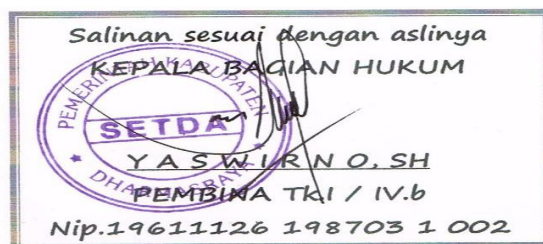 Salinan sesuai dengan aslinya
KEPALA BAGIAN HUKUM
PEMERINTAH KABUPATEN
SETDA
DHARMASRAYA
Y A S W I R N O, SH
PEMBINA Tk.I / IV.b
Nip.19611126 198703 1 002